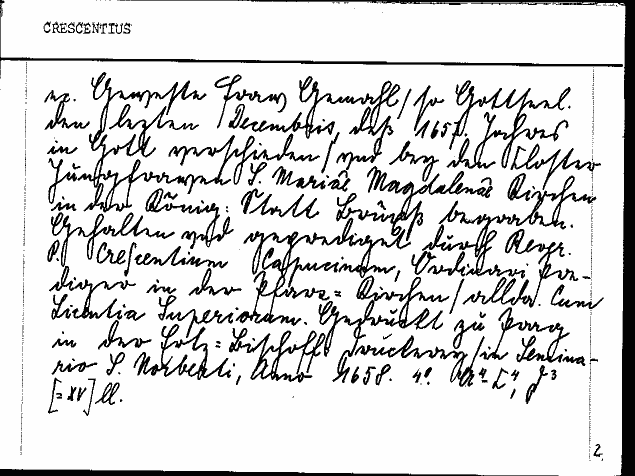 CRESCENTIUS
rc. Geweste Fraw Gemahl / so Gottseel.
den lezten Decembris, deß 1657. Jahres
in Gott verschieden / vnd bey dem Closter
Jungfrawen S. Mariae Magdalenae Kirchen
in der König: Statt Brüx begraben.
Gehalten vnd geprediget durch Revr.
P. Crescentium Capucinum, Ordinari Pre-
diger in der Pfarr=Kirchen / allda. Cum
Licentia Superiorum. Gedruckt zu Prag
in der Ertz=Bischoffl. Druckerey / in Semina-
rio S. Norberti, Anno 1658. 4°. A⁴-C⁴, J³
[=XV] ll.
2.